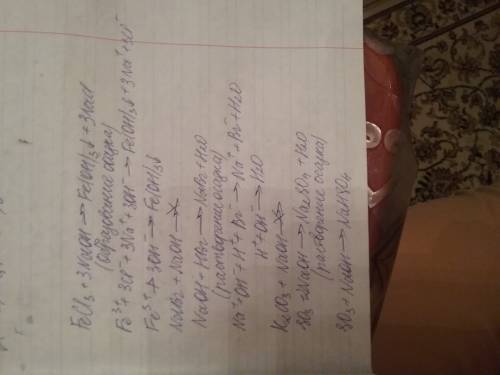 FeCl₃ + 3NaOH → Fe(OH)₃↓ + 3NaCl
(образование осадка)
Fe³⁺ + 3Cl⁻ + 3Na⁺ + 3OH⁻ → Fe(OH)₃↓ + 3Na⁺ + 3Cl⁻
Fe³⁺ + 3OH⁻ → Fe(OH)₃↓
NaOH + HBr → NaBr + H₂O
(растворение осадка)
Na⁺ + OH⁻ + H⁺ + Br⁻ → Na⁺ + Br⁻ + H₂O
H⁺ + OH⁻ → H₂O
+ NaOH →
SO₃ + 2NaOH → Na₂SO₄ + H₂O
(растворение осадка)
SO₃ + NaOH → NaHSO₄